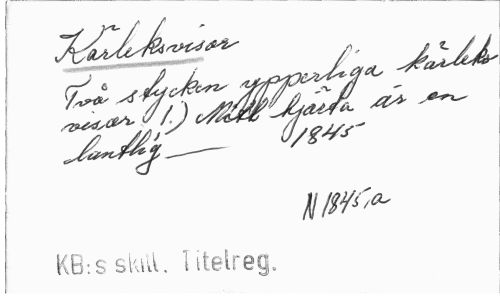 Kärleksvisor
Två stycken ypperliga kärleks
visor 1.) Mitt hjärta är en
lantlig —— 1845
N 1845,a
KB:s skill. Titelreg.